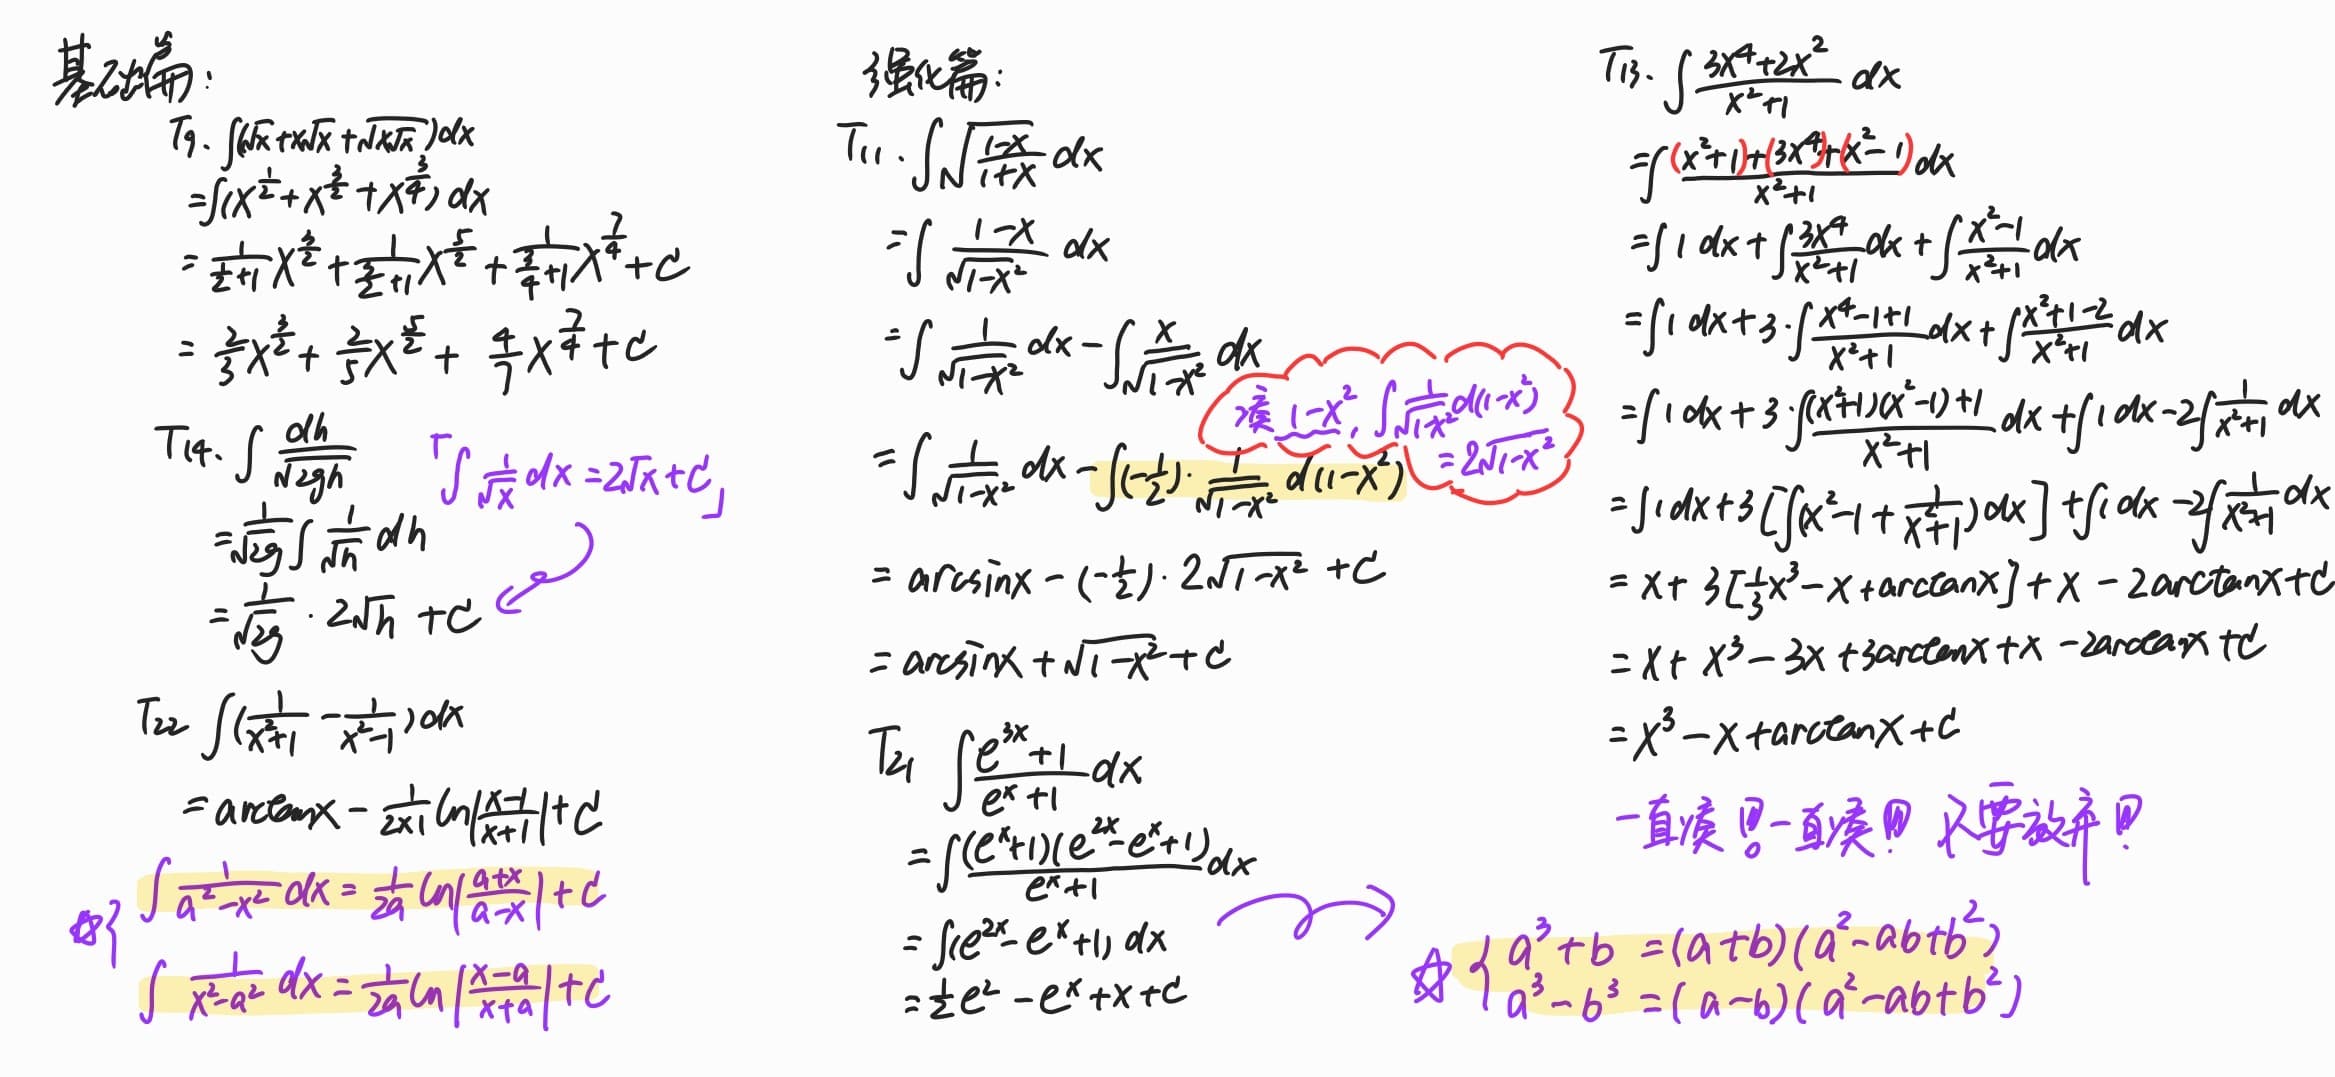 基础篇:
T9. ∫(√x+x√x+√(x√x))dx
=∫(x^(1/2)+x^(3/2)+x^(3/4))dx
= 1/(1/2+1) x^(3/2) + 1/(3/2+1) x^(5/2) + 1/(3/4+1) x^(7/4) + C
= 2/3 x^(3/2) + 2/5 x^(5/2) + 4/7 x^(7/4) + C
T14. ∫ dh/√(2gh)
「∫ 1/√x dx = 2√x + C」
= 1/√(2g) ∫ 1/√h dh
= 1/√(2g) · 2√h + C
T22 ∫(1/(x²+1) - 1/(x²-1))dx
= arctanx - 1/(2×1) ln|(x-1)/(x+1)| + C
☆{ ∫ 1/(a²-x²) dx = 1/(2a) ln|(a+x)/(a-x)| + C
∫ 1/(x²-a²) dx = 1/(2a) ln|(x-a)/(x+a)| + C
强化篇:
T11. ∫√((1-x)/(1+x)) dx
= ∫ (1-x)/√(1-x²) dx
= ∫ 1/√(1-x²) dx - ∫ x/√(1-x²) dx
凑 1-x², ∫ 1/√(1-x²) d(1-x²)
= 2√(1-x²)
= ∫ 1/√(1-x²) dx - ∫(-1/2)· 1/√(1-x²) d(1-x²)
= arcsinx - (-1/2)· 2√(1-x²) + C
= arcsinx + √(1-x²) + C
T21 ∫ (e^(3x)+1)/(e^x+1) dx
= ∫ (e^x+1)(e^(2x)-e^x+1)/(e^x+1) dx
= ∫(e^(2x)-e^x+1) dx
= 1/2 e² - e^x + x + C
T13. ∫ (3x⁴+2x²)/(x²+1) dx
= ∫ ((x²+1)+(3x⁴)+(x²-1))/(x²+1) dx
= ∫ 1 dx + ∫ 3x⁴/(x²+1) dx + ∫ (x²-1)/(x²+1) dx
= ∫ 1 dx + 3·∫ (x⁴-1+1)/(x²+1) dx + ∫ (x²+1-2)/(x²+1) dx
= ∫ 1 dx + 3·∫ ((x²+1)(x²-1)+1)/(x²+1) dx + ∫ 1 dx - 2∫ 1/(x²+1) dx
= ∫ 1 dx + 3[∫(x²-1+ 1/(x²+1))dx] + ∫ 1 dx - 2∫ 1/(x²+1) dx
= x + 3[1/3 x³ - x + arctanx] + x - 2arctanx + C
= x + x³ - 3x + 3arctanx + x - 2arctanx + C
= x³ - x + arctanx + C
一直凑!一直凑!不要放弃!
☆{ a³+b =(a+b)(a²-ab+b²)
a³-b³ =(a-b)(a²-ab+b²)